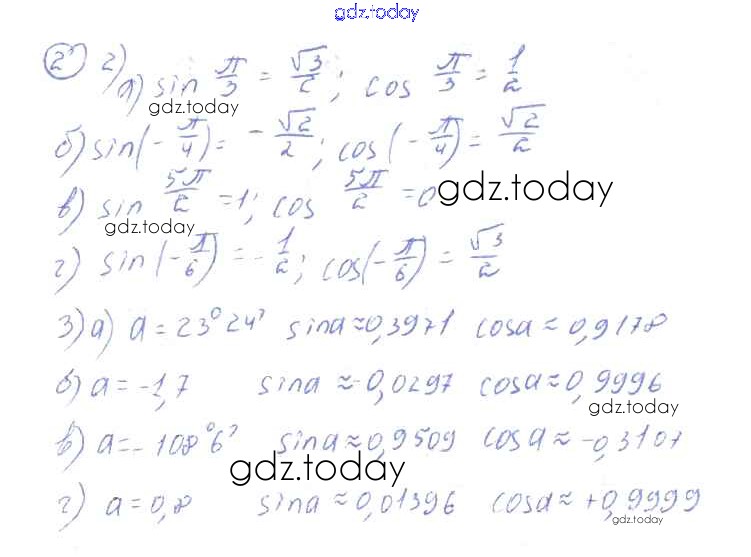 gdz.today
2) 2) а) sin π/3 = √3/2; cos π/3 = 1/2
gdz.today
б) sin(-π/4) = -√2/2; cos(-π/4) = √2/2
в) sin 5π/2 = 1; cos 5π/2 = 0
gdz.today
gdz.today
г) sin(-π/6) = -1/2; cos(-π/6) = √3/2
3) а) a = 23°24' sina ≈ 0,3971 cosa ≈ 0,9178
б) a = -1,7 sina ≈ -0,0297 cosa ≈ 0,9996
gdz.today
в) a = -108°6' sina ≈ 0,9509 cosa ≈ -0,3107
gdz.today
г) a = 0,8 sina ≈ 0,01396 cosa ≈ +0,9999
gdz.today